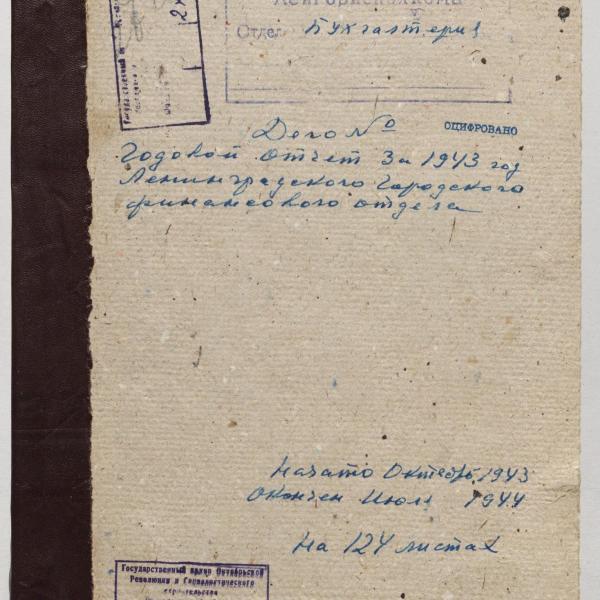 Ленгорисполкома
Отдел Бухгалтерия
Дело №
ОЦИФРОВАНО
Годовой отчет за 1943 год
Ленинградского Городского
финансового отдела
Начато Октябрь 1943
Окончен Июль 1944
На 124 листах
Государственный архив Октябрьской
Революции и Социалистического
строительства